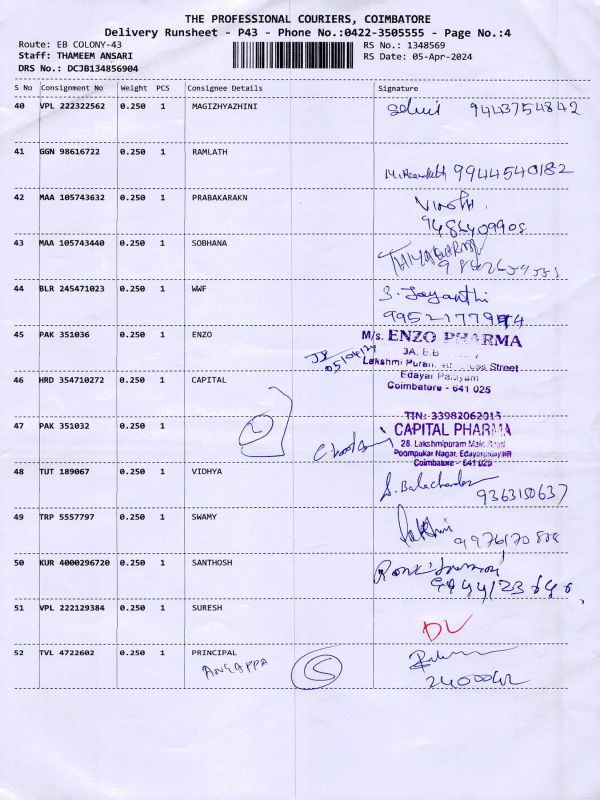 THE PROFESSIONAL COURIERS, COIMBATORE
Delivery Runsheet - P43 - Phone No.:0422-3505555 - Page No.:4
Route: EB COLONY-43 RS No.: 1348569
Staff: THAMEEM ANSARI RS Date: 05-Apr-2024
DRS No.: DCJB134856904
S No Consignment No Weight PCS Consignee Details Signature
40 VPL 222322562 0.250 1 MAGIZHYAZHINI
Selvi 9443754842
41 GGN 98616722 0.250 1 RAMLATH
9944540182
42 MAA 105743632 0.250 1 PRABAKARAKN
43 MAA 105743440 0.250 1 SOBHANA
44 BLR 245471023 0.250 1 WWF
S. Jayanthi
45 PAK 351036 0.250 1 ENZO
M/s. ENZO PHARMA
05/04/24
3A, E.B
Lakshmi Puram, Street
Edayar Palayam
Coimbatore - 641 025
46 HRD 354710272 0.250 1 CAPITAL
TIN: 33982062015
47 PAK 351032 0.250 1
2
CAPITAL PHARMA
28, Lakshmipuram Main Road
Poompukar Nagar, Edayarpalayam
Coimbatore - 641 025
48 TUT 189067 0.250 1 VIDHYA
S. Balachander
9363150637
49 TRP 5557797 0.250 1 SWAMY
50 KUR 4000296720 0.250 1 SANTHOSH
51 VPL 222129384 0.250 1 SURESH
DL
52 TVL 4722602 0.250 1 PRINCIPAL
ANGAPPA
5